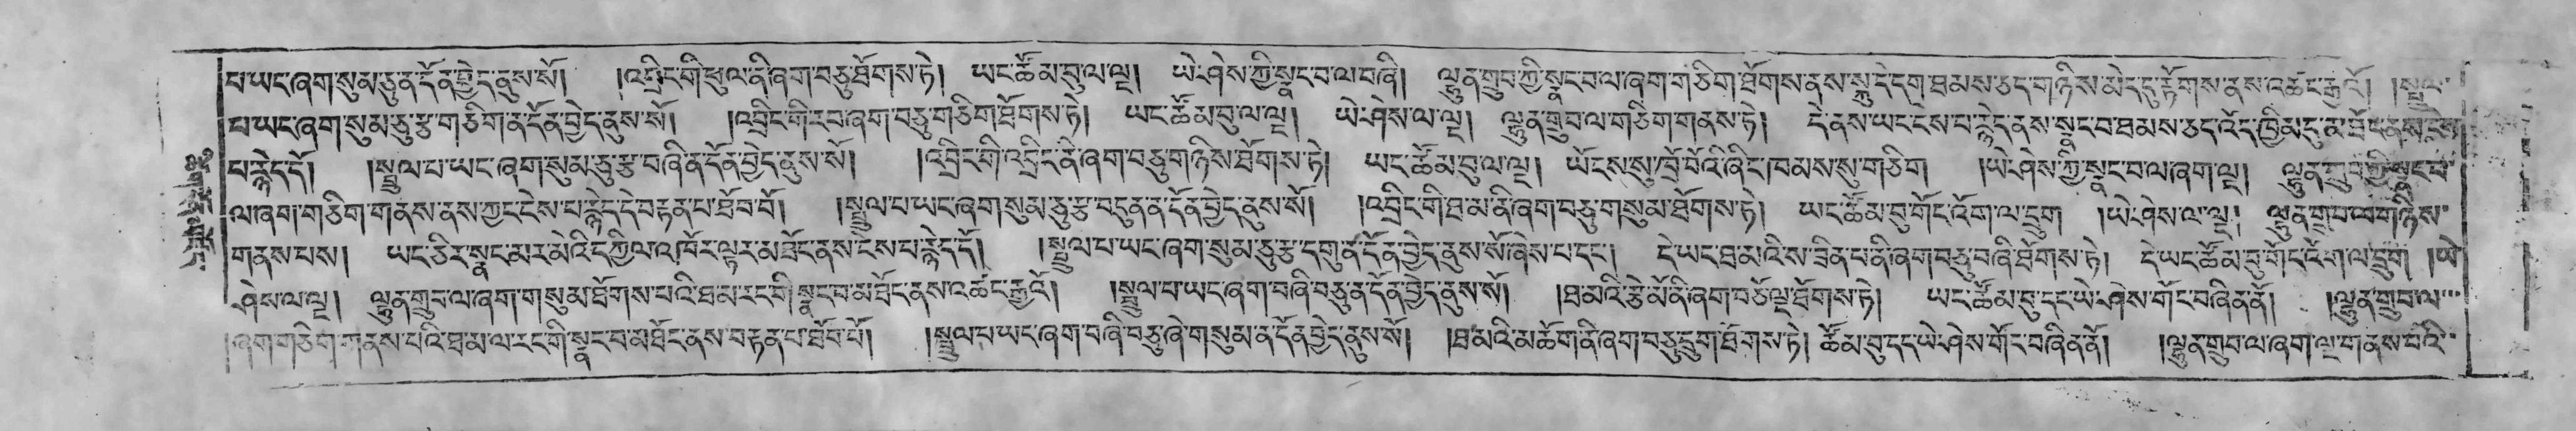 པ་ཡང་ཞག་སུམ་ཅུན་དོན་བྱེད་ནུས་སོ། །འབྲིང་གི་ཕུལ་ནི་ཞག་བཅུ་ཐོགས་ཏེ། ཡང་ཚོམ་བུ་ལ་ལྔ། ཡེ་ཤེས་ཀྱི་སྣང་བ་ལ་བཞི། ལྷུན་གྲུབ་ཀྱི་སྣང་བལ་ཞག་གཅིག་ཐོགས་ནས་སྐུ་དེ་དག་ཐམས་ཅད་གཉིས་མེད་དུ་རྟོགས་ནས་འཚང་རྒྱའོ། །སྤྲུལ་
པ་ཡང་ཞག་སུམ་ཅུ་རྩ་གཅིག་ན་དོན་བྱེད་ནུས་སོ། །འབྲིང་གི་རབ་ཞག་བཅུ་གཅིག་ཐོགས་ཏེ། ཡང་ཚོམ་བུ་ལ་ལྔ། ཡེ་ཤེས་ལ་ལྔ། ལྷུན་གྲུབ་ལ་གཅིག་གནས་ཏེ། དེ་ནས་ཡང་ངེས་པ་རྙེད་ནས་སྣང་བ་ཐམས་ཅད་འོད་ཁྱིམ་དུ་མ་ཐོང་ནས་ངེས་
པ་རྙེད་དོ། །སྤྲུལ་པ་ཡང་ཞག་སུམ་ཅུ་རྩ་བཞིན་དོན་བྱེད་ནུས་སོ། །འབྲིང་གི་འབྲིང་ནི་ཞག་བཅུ་གཉིས་ཐོགས་ཏེ། ཡང་ཚོམ་བུ་ལ་ལྔ། ཡོངས་སུ་ཁྲོ་བོའི་ཞིང་ཁམས་སུ་གཅིག །ཡེ་ཤེས་ཀྱི་སྣང་བ་ལ་ཞག་ལྔ། ལྷུན་གྲུབ་ཀྱི་སྣང་བ་
ལ་ཞག་གཅིག་གནས་ནས་ཀྱང་ངེས་པ་རྙེད་དེ་བརྟན་པ་ཐོབ་བོ། །སྤྲུལ་པ་ཡང་ཞག་སུམ་ཅུ་རྩ་བདུནན་དོན་བྱེད་ནུས་སོ། །འབྲིང་གི་ཐ་མ་ནི་ཞག་བཅུ་གསུམ་ཐོགས་ཏེ། ཡང་ཚོམ་བུ་གོང་འོག་ལ་དྲུག །ཡེ་ཤེས་ལ་ལྔ། ལྷུན་གྲུབ་ལ་གཉིས་
གནས་པས། ཡང་ཅིར་སྣང་མར་མེའི་དཀྱིལ་འཁོར་ལྟར་མཐོང་ནས་ངེས་པ་རྙེད་དོ། །སྤྲུལ་པ་ཡང་ཞག་སུམ་ཅུ་རྩ་དགུན་དོན་བྱེད་ནུས་སོ་ཞེས་པ་དང་། དེ་ཡང་ཐ་མའི་ས་ཟིན་པ་ནི་ཞག་བཅུ་བཞི་ཐོགས་ཏེ། དེ་ཡང་ཚོམ་བུ་གོང་འོག་ལ་དྲུག །ཡེ་
ཤེས་ལ་ལྔ། ལྷུན་གྲུབ་ལ་ཞག་གསུམ་ཐོགས་པའི་ཐ་མ་རང་གི་སྣང་བ་མཐོང་ནས་འཚང་རྒྱའོ། །སྤྲུལ་པ་ཡང་ཞག་བཞི་བཅུན་དོན་བྱེད་ནུས་སོ། །ཐ་མའི་རྩེ་མོ་ནི་ཞག་བཅོ་ལྔ་ཐོགས་ཏེ། ཡང་ཚོམ་བུ་དང་ཡེ་ཤེས་གོང་བཞིན་ནོ། །ལྷུན་གྲུབ་ལ་
ཞག་བཞི་གནས་པའི་ཐ་མ་ལ་རང་གི་སྣང་བ་མཐོང་ནས་བརྟན་པ་ཐོབ་པོ། །སྤྲུལ་པ་ཡང་ཞག་བཞི་བཅུ་ཞེ་གསུམ་ན་དོན་བྱེད་ནུས་སོ། །ཐ་མའི་མཆོག་ནི་ཞག་བཅུ་དྲུག་ཐོགས་ཏེ། ཚོམ་བུ་དང་ཡེ་ཤེས་གོང་བཞིན་ནོ། །ལྷུན་གྲུབ་ལ་ཞག་ལྔ་གནས་པའི་